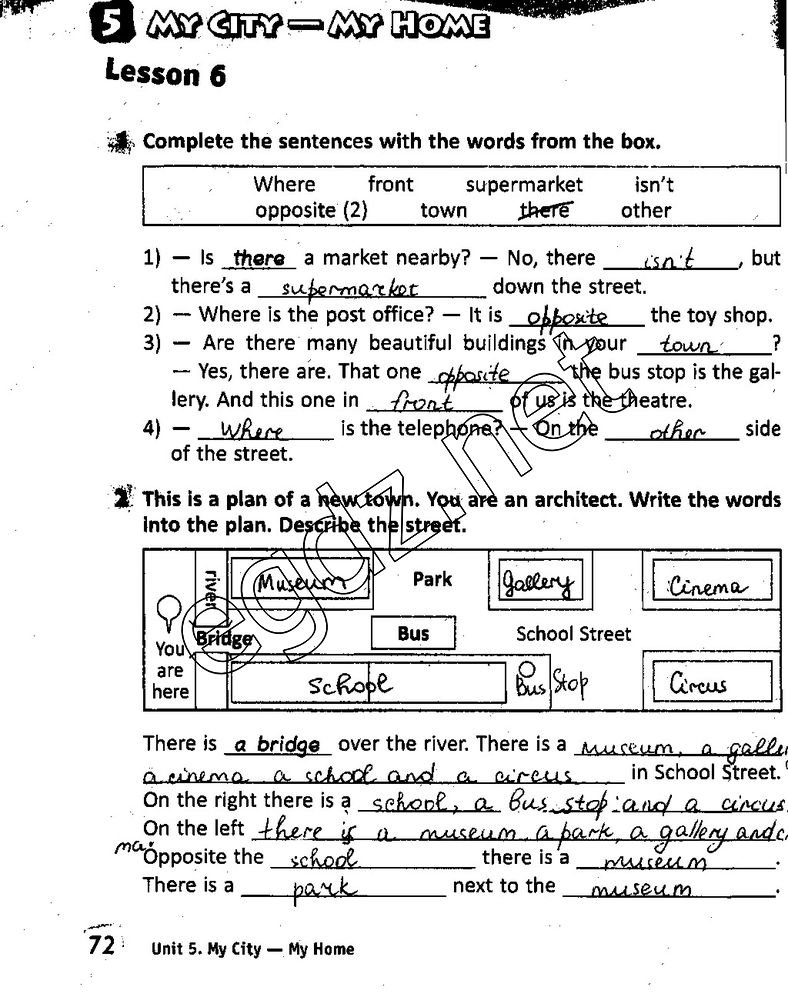 5 MY CITY — MY HOME
Lesson 6
1 Complete the sentences with the words from the box.
Where front supermarket isn't
opposite (2) town there other
1) — Is there a market nearby? — No, there isn't, but
there's a supermarket down the street.
2) — Where is the post office? — It is opposite the toy shop.
3) — Are there many beautiful buildings in your town?
— Yes, there are. That one opposite the bus stop is the gal-
lery. And this one in front of us is the theatre.
4) — Where is the telephone? — On the other side
of the street.
2 This is a plan of a new town. You are an architect. Write the words
into the plan. Describe the street.
river Museum Park gallery Cinema
Bridge Bus School Street
You
are
here
school Bus Stop Circus
There is a bridge over the river. There is a museum, a galle
a cinema a school and a circus in School Street.
On the right there is a school, a Bus stop and a circus
On the left there is a museum, a park, a gallery and c
ma.
Opposite the school there is a museum.
There is a park next to the museum.
72 Unit 5. My City — My Home
egdz.net